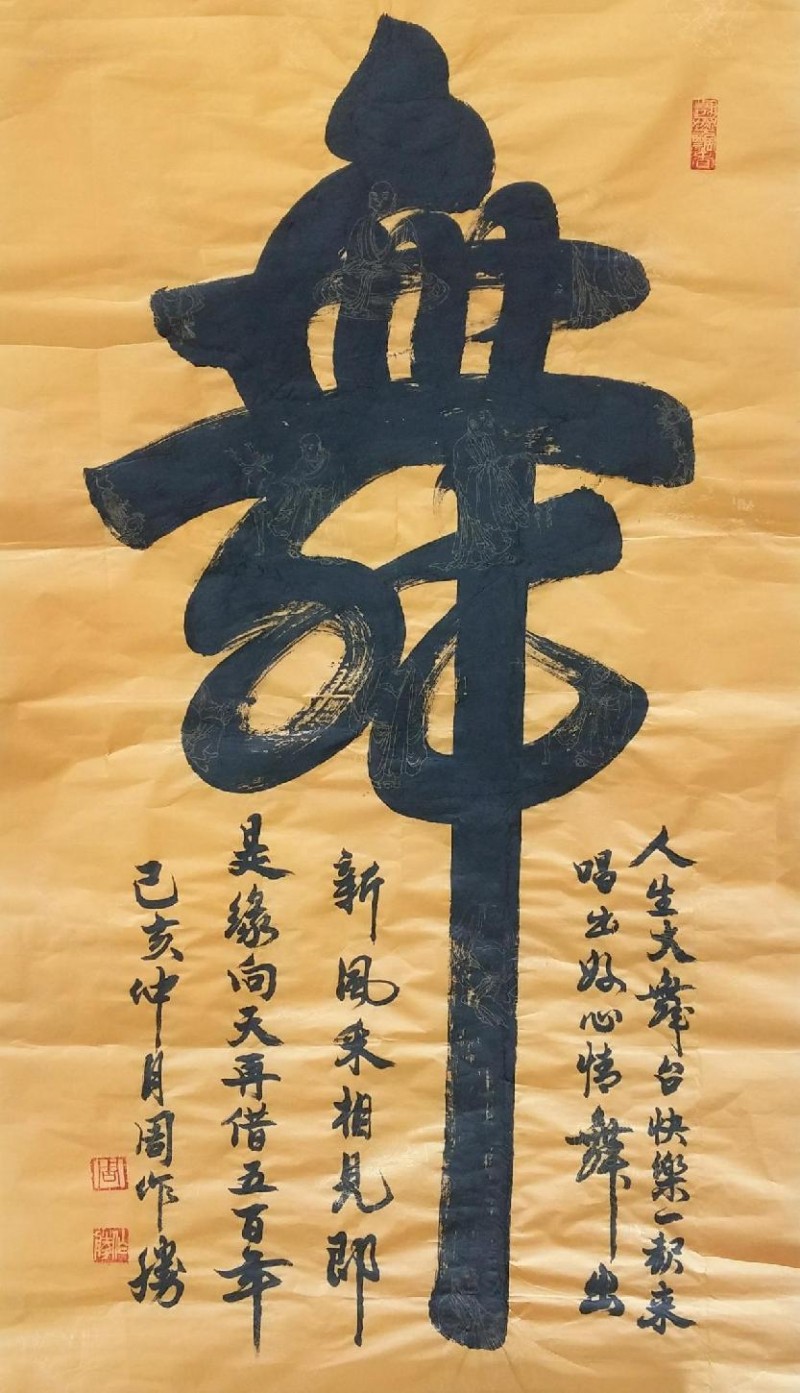 舞
人生大舞台快樂一起来
唱出好心情舞出
新風采相見即
是緣向天再借五百年
己亥仲月周作勝
周
作勝